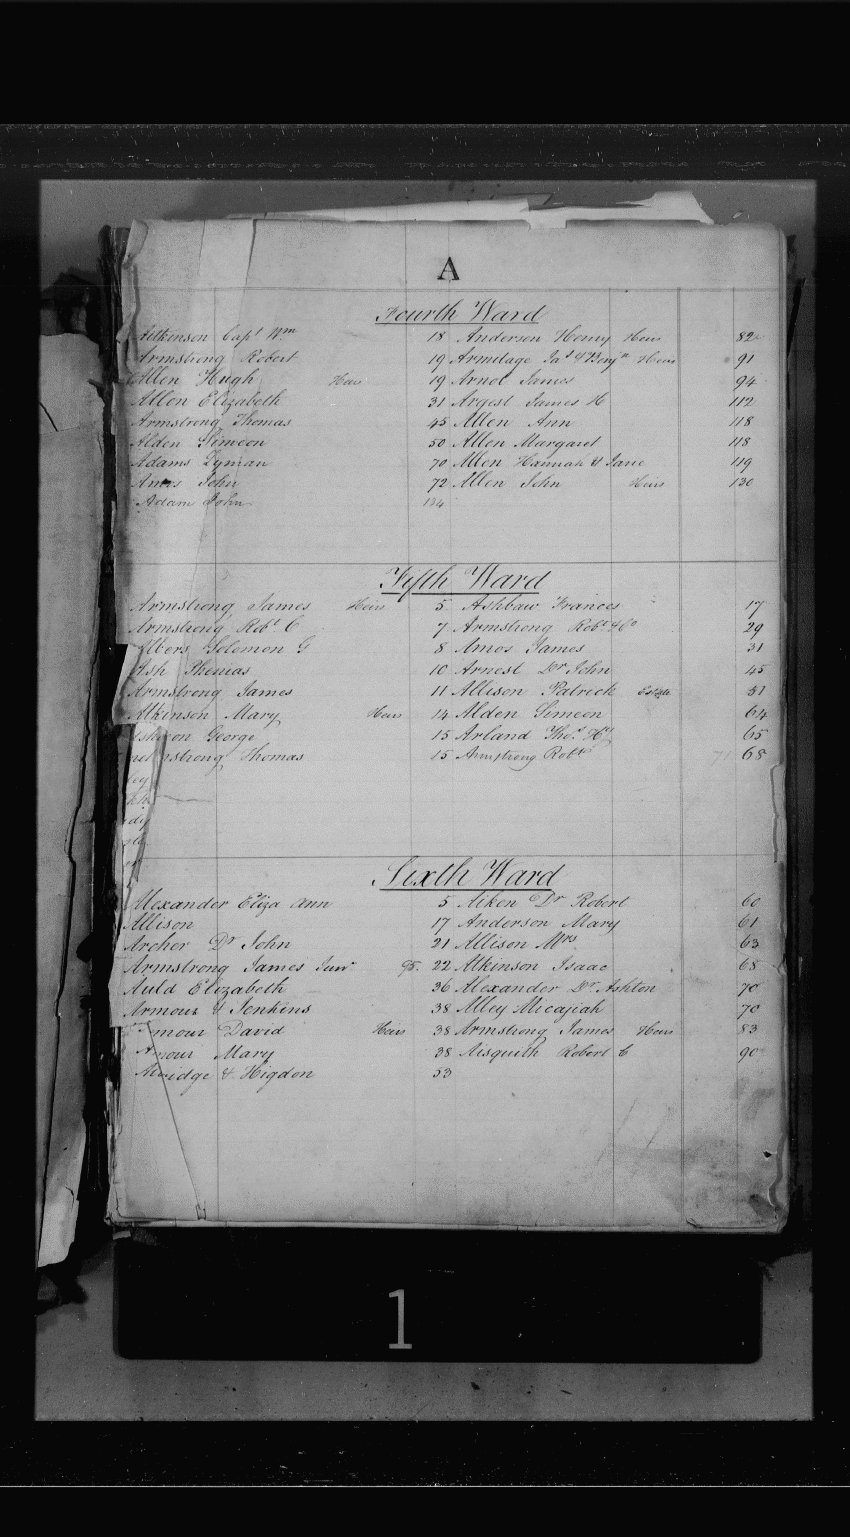 A
Fourth Ward
Aitkinson Capt Wm 18 Anderson Henry Heirs 82
Armstrong Robert 19 Armitage Jas & Benjn Heirs 91
Allen Hugh Heirs 19 Arnot James 94
Allen Elizabeth 31 Argest James H 112
Armstrong Thomas 45 Allen Ann 118
Alden Simeon 50 Allen Margaret 118
Adams Lyman 70 Allen Hannah & Jane 119
Amos John 72 Allen John Heirs 130
Adam John 134
Fifth Ward
Armstrong James Heirs 5 Ashbaw Frances 17
Armstrong Robt C 7 Armstrong Robt & Co 29
Albers Solomon G 8 Amos James 31
Ash Phenias 10 Arnest Dr John 45
Armstrong James 11 Allison Patrick Estate 51
Atkinson Mary Heirs 14 Alden Simeon 64
George 15 Arland Thos 65
Thomas 15 Armstrong Robt 68
Sixth Ward
Alexander Eliza Ann 5 Aiken Dr Robert 60
Allison 17 Anderson Mary 61
Archer Dr John 21 Allison Mrs 63
Armstrong James Junr 95. 22 Atkinson Isaac 68
Auld Elizabeth 36 Alexander Dr Ashton 70
Armour & Jenkins 38 Alley Micajiah 70
Amour David Heirs 38 Armstrong James Heirs 83
Amour Mary 38 Aisquith Robert C 90
& Higdon 53
1